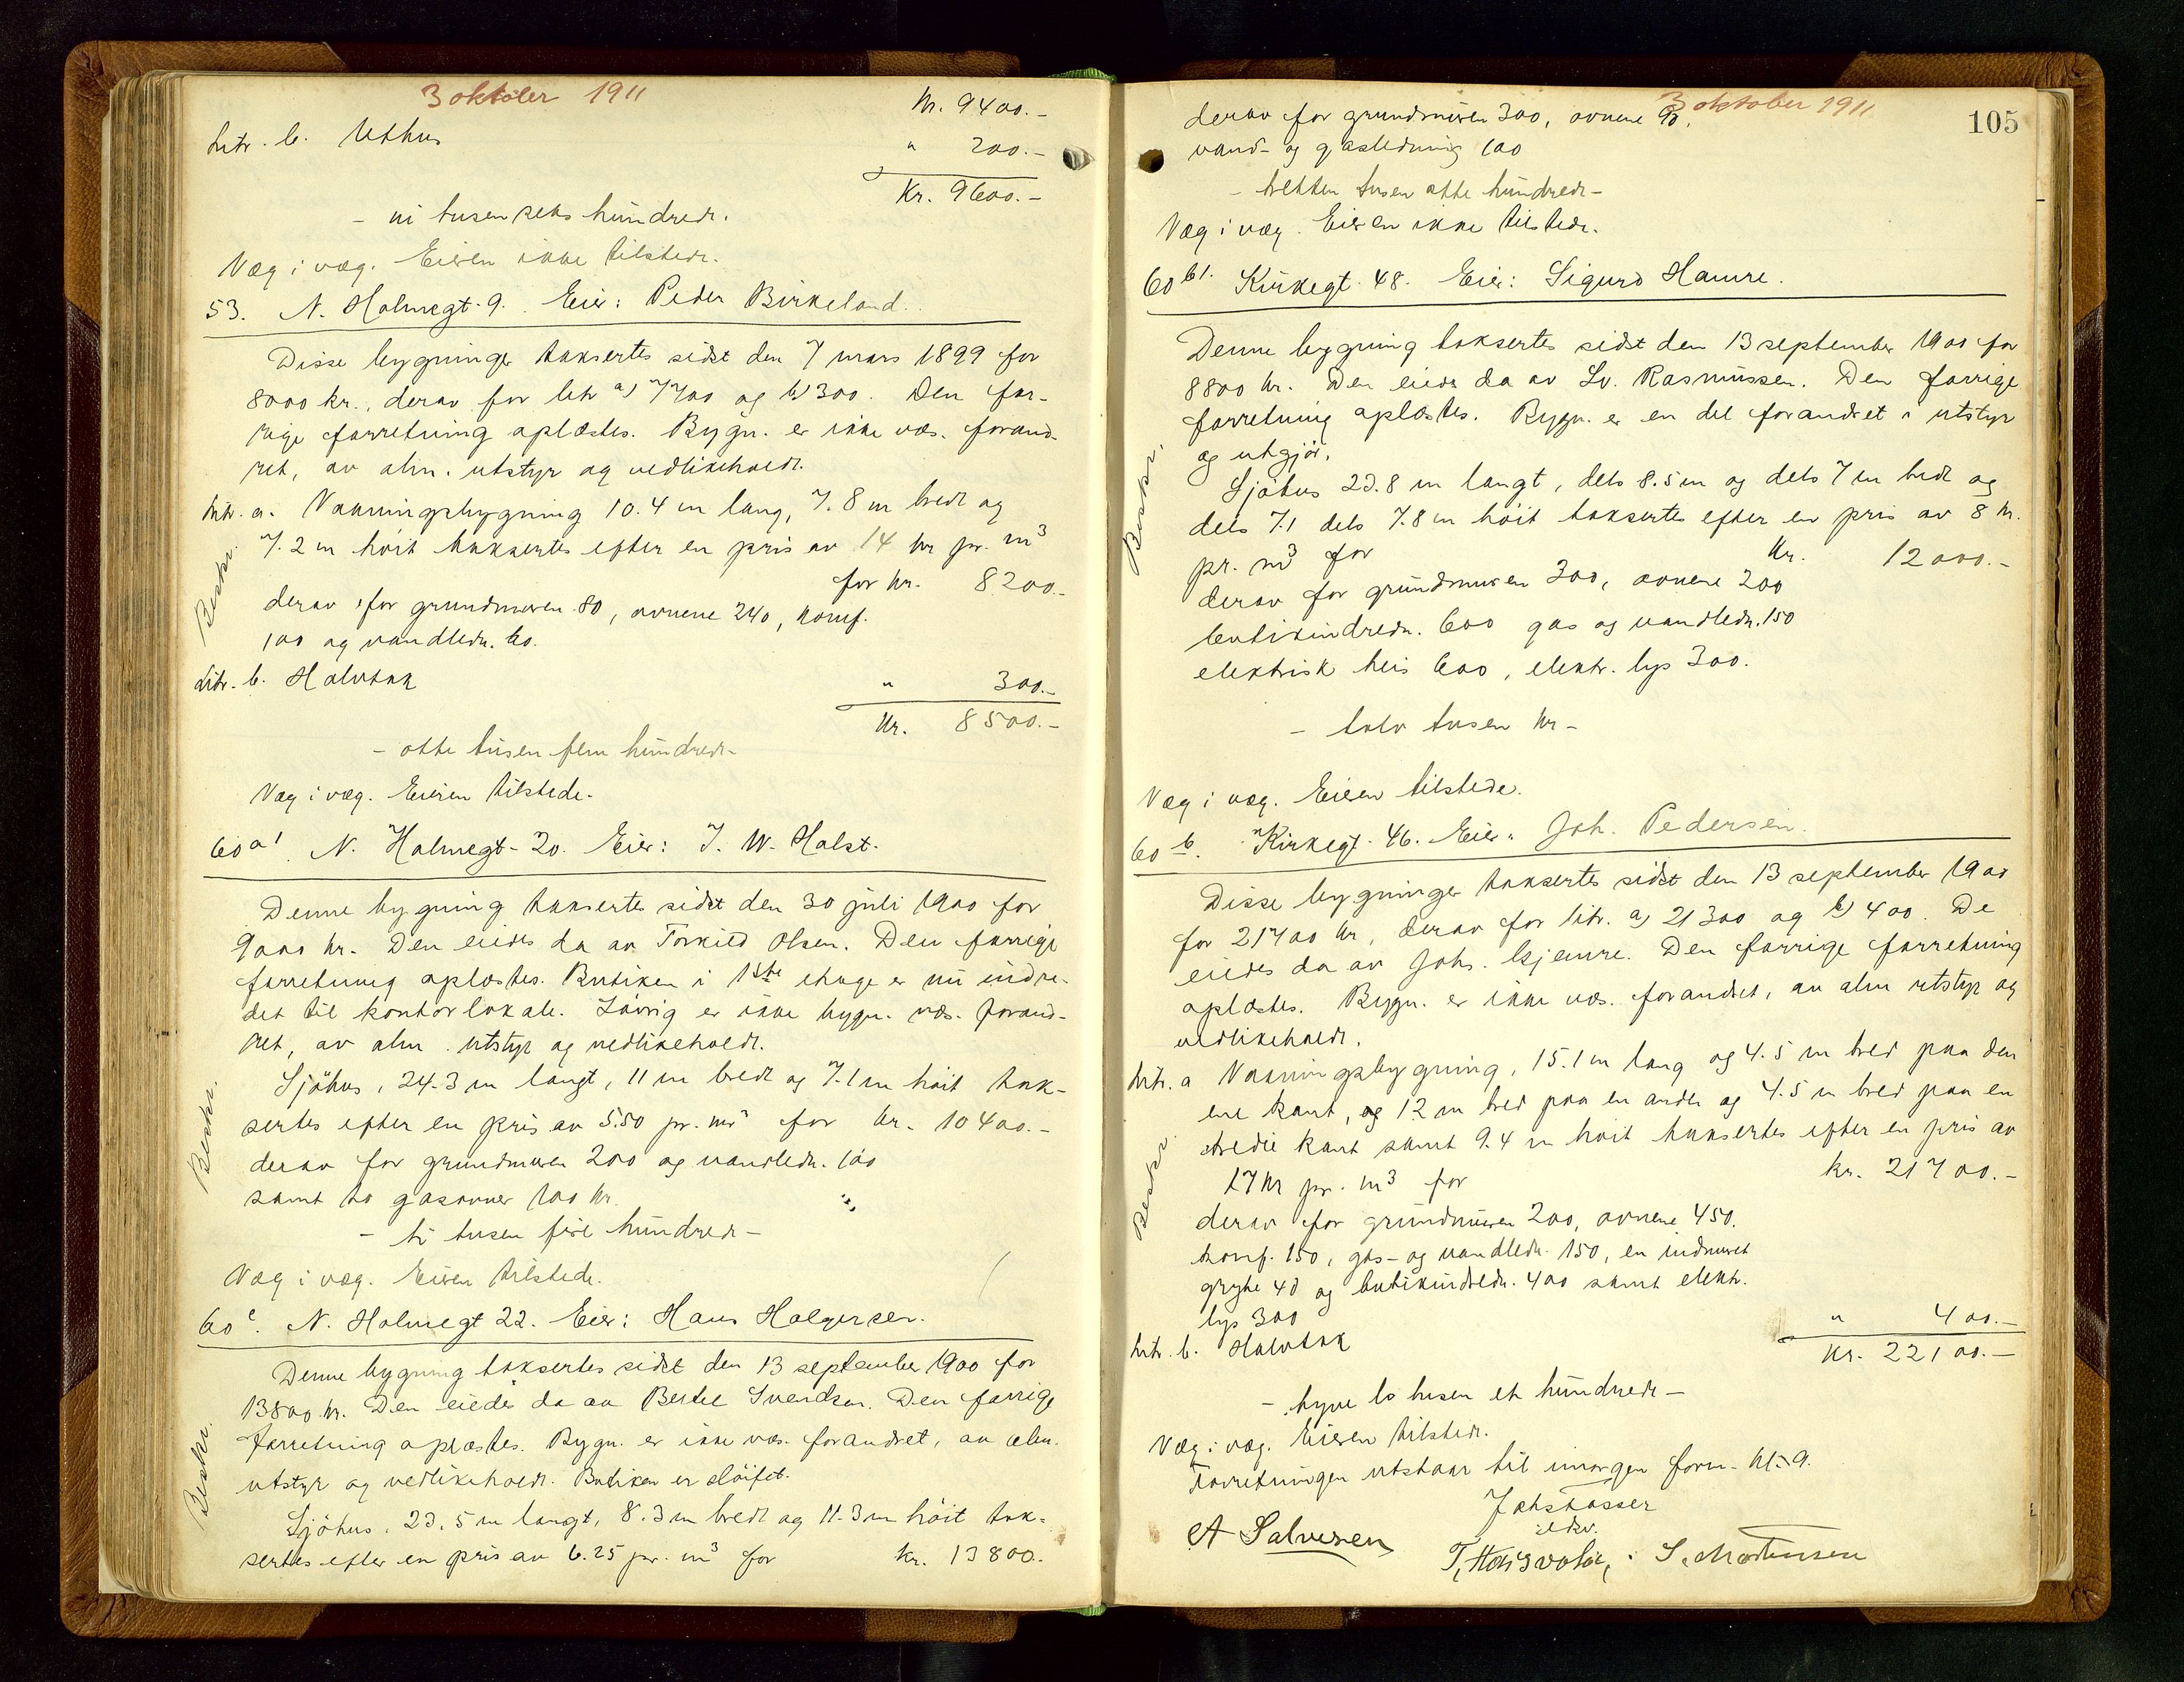 3 oktober 1911
Kr. 9400.-
Litr. b. Uthus " 200.-
Kr. 9600.-
- ni tusen seks hundrede.
Væg i væg. Eieren ikke tilstede.
53. N. Holmegt. 9. Eier: Peder Birkeland.
Disse bygninger taksertes sidst den 7 mars 1899 for
8000 kr., derav for litr a) 7700 og b) 300. Den for-
rige forretning oplæstes. Bygn. er ikke væs. forand-
ret, av alm. utstyr og vedlikeholdt.
Litr. a. Vaaningsbygning 10.4 m lang, 7.8 m bred og
7.2 m høit taksertes efter en pris av 14 kr pr. m³
for kr. 8200.-
Beskr.
derav for grundmuren 80, ovnene 240, komf.
100 og vandledn. 60.
Litr. b. Halvtak " 300.-
Kr. 8500.-
- otte tusen fem hundrede-
Væg i væg. Eieren tilstede.
60 a1. N. Holmegt. 20. Eier: J. W. Holst.
Denne bygning taksertes sidst den 30 juli 1900 for
9000 kr. Den eiedes da av Torkild Olsen. Den forrige
forretning oplæstes. Butiken i 1ste etage er nu indre-
det til kontorlokale. Iøvrig er ikke bygn. væs. forand-
ret, av alm. utstyr og vedlikeholdt.
Sjøhus, 24.3 m langt, 11 m bredt og 7.1 m høit tak-
sertes efter en pris av 5.50 pr. m³ for kr. 10400.-
Beskr.
derav for grundmuren 200 og vandledn. 100
samt to gasovner 100 kr.
- ti tusen fire hundrede -
Væg i væg. Eieren tilstede.
60 c. N. Holmegt 22. Eier: Hans Holgersen.
Denne bygning taksertes sidst den 13 september 1900 for
13800 kr. Den eiedes da av Bertel Svendsen. Den forrige
forretning oplæstes. Bygn. er ikke væs. forandret, av alm.
utstyr og vedlikeholdt. Butiken er sløifet.
Beskr.
Sjøhus, 23.5 m langt, 8.3 m bredt og 11.3 m høit tak-
sertes efter en pris av 6.25 pr. m³ for kr. 13800.
3 oktober 1911
105
derav for grundmuren 300, ovnene 90,
vand- og gasledning 100
- tretten tusen otte hundrede -
Væg i væg. Eieren ikke tilstede.
60 b1. Kirkegt. 48. Eier: Sigurd Hamre.
Denne bygning taksertes sidst den 13 september 1900 for
8800 kr. Den eiedes da av Lv. Rasmussen. Den forrige
forretning oplæstes. Bygn. er en del forandret i utstyr
og utgjør.
Beskr.
Sjøhus 23.8 m langt, dels 8.5 m og dels 7 m bredt og
dels 7.1 dels 7.8 m høit taksertes efter en pris av 8 kr.
pr. m³ for Kr. 12000.-
derav for grundmuren 300, ovnene 200
butikindredn. 600 gas og vandledn. 150
elektrisk heis 600, elektr. lys 300.
- tolv tusen kr -
Væg i væg. Eieren tilstede.
60 b. Kirkegt. 46. Eier: Joh. Pedersen.
Disse bygninger taksertes sidst den 13 september 1900
for 21700 kr, derav for litr. a) 21300 og b) 400. De
eiedes da av Johs. Gjemre. Den forrige forretning
oplæstes. Bygn. er ikke væs. forandret, av alm utstyr og
vedlikeholdt.
Litr. a Vaaningsbygning, 15.1 m lang og 4.5 m bred paa den
ene kant, og 12 m bred paa en anden og 4.5 m bred paa en
tredie kant samt 9.4 m høit taksertes efter en pris av
17 kr pr. m³ for kr. 21700.-
Beskr.
derav for grundmuren 200, ovnene 450,
komf. 150, gas- og vandledn. 150, en indmuret
gryte 40 og butikindredn. 400 samt elektr.
lys 300
Litr. b. Halvtak " 400.-
Kr. 22100.-
- tyve to tusen et hundrede -
Væg i væg. Eieren tilstede.
Forretningen utstaar til imorgen form. kl. 9.
A Salvesen
S. Mortensen